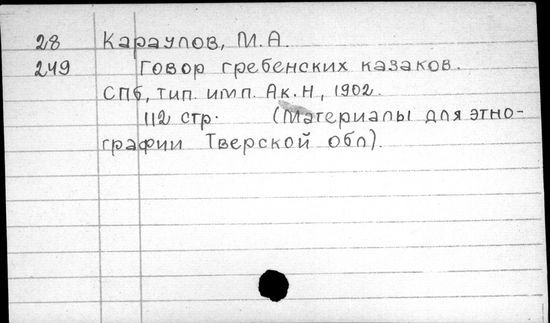 28 Караулов, М.А.
249 Говор гребенских казаков.
СПб, тип. имп. Ак.Н, 1902.
112 стр. (Материалы для этно-
графии Тверской обл).